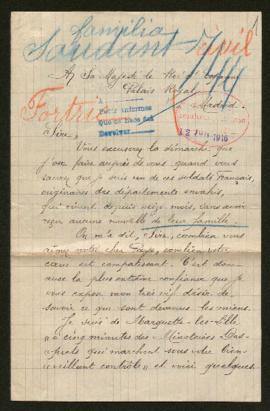 familia
Soudant
Civil
A Sa Majesté le Roi d'Espagne
Palais Royal
à Madrid.
Fortris
Pedir informes
Devolver
12 JUN 1916
Sire,
Vous excuserez la démarche que
j'ose faire auprès de vous quand vous
saurez que je suis un de ces soldats français,
originaires des départements envahis,
qui vivent depuis seize mois, sans avoir
reçu aucune nouvelle de leur famille.
On m'a dit, Sire, combien vous
votre cher Pays, combien votre
cœur est compatissant. C'est donc
avec la plus entière confiance que je
vous expose mon très vif désir de
savoir ce que sont devenus les miens.
Je suis de Marquette-les-Lille,
à cinq minutes des
qui marchent sous votre bien-
veillant contrôle et voici quelques